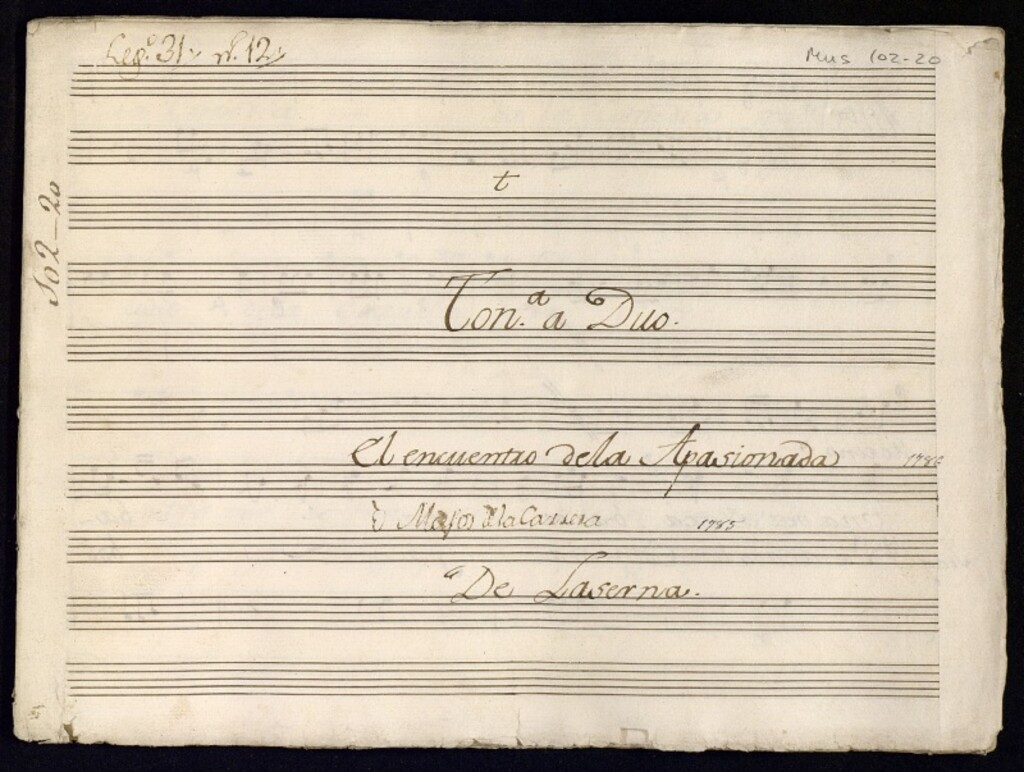 Leg.º 31,, n.º 12,,
Mus 102-20
102-20
t
Ton.ª a Duo.
El encuentro dela Apasionada 1785
Majos 1785
De Laserna.